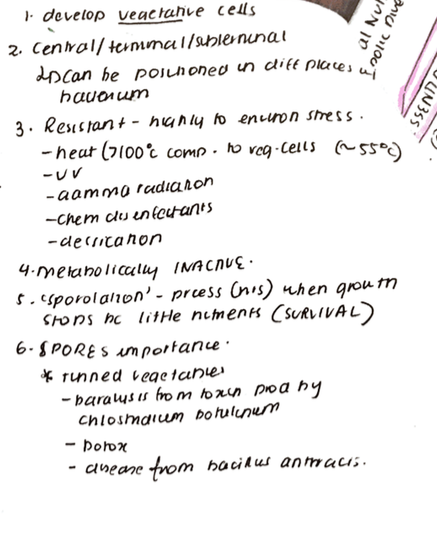 1. develop vegetative cells
2. Central/terminal/subterminal
↳ can be positioned in diff places
bacterium
3. Resistant - highly to environ stress.
- heat (>100°c comp. to veg. cells (~55°c)
- UV
- gamma radiation
- chem disinfectants
- desiccation
4. metabolically INACTIVE.
5. 'sporolation' - prcess (hrs) when growth
stops bc little nutrients (SURVIVAL)
6. SPORES importance.
* tinned vegetables
- paralysis from toxin prod by
chlostridium botulinum
- botox
- disease from bacillus anthracis.
al Nut